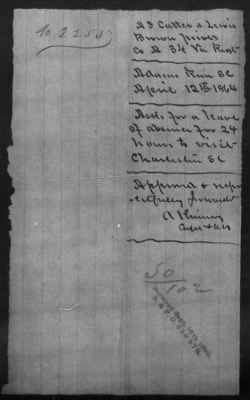 No 2255
A S Cutter & Lewis
Brown
Co A 34 Va Regt
Adams Run SC
April 12th 1864
Asks for a leave
of absence for 24
hours to visit
Charleston SC
Approved & resp
-ectfully forwarded
A
50
102